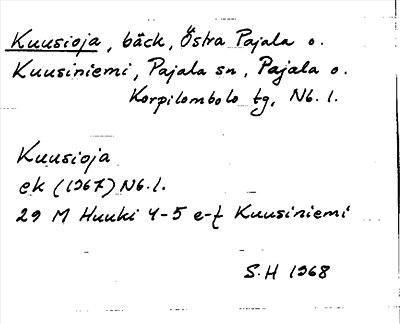 Kuusioja, bäck, Östra Pajala o.
Kuusiniemi, Pajala sn, Pajala o.
Korpilombolo tg, Nb. l.
Kuusioja
ek (1967) Nb. l.
29 M Huuki 4-5 e-f Kuusiniemi
S.H 1968